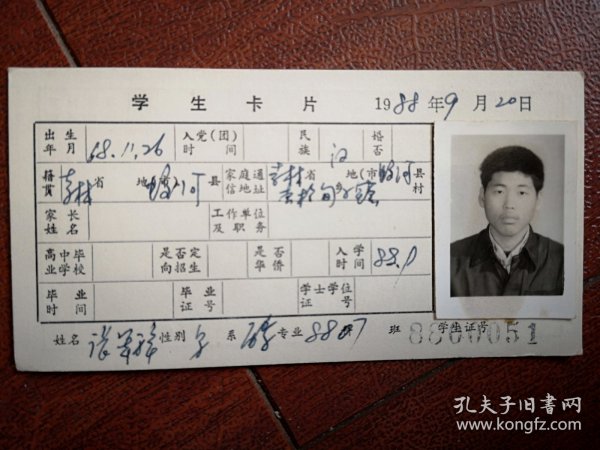 学生卡片 1988年9月20日
出生年月 68.11.26 入党(团)时间 民族 汉 婚否
籍贯 吉林省 地(市) 河县 家庭通信地址 吉林省 地(市) 河县 村
家长姓名 工作单位及职务
高中毕业学校 是否定向招生 是否华侨 入学时间 88.9
毕业时间 毕业证号 学士学位证号
姓名 张 祥 性别 男 系 专业 88 7 班 学生证号 8800051
孔夫子旧书网
www.kongfz.com